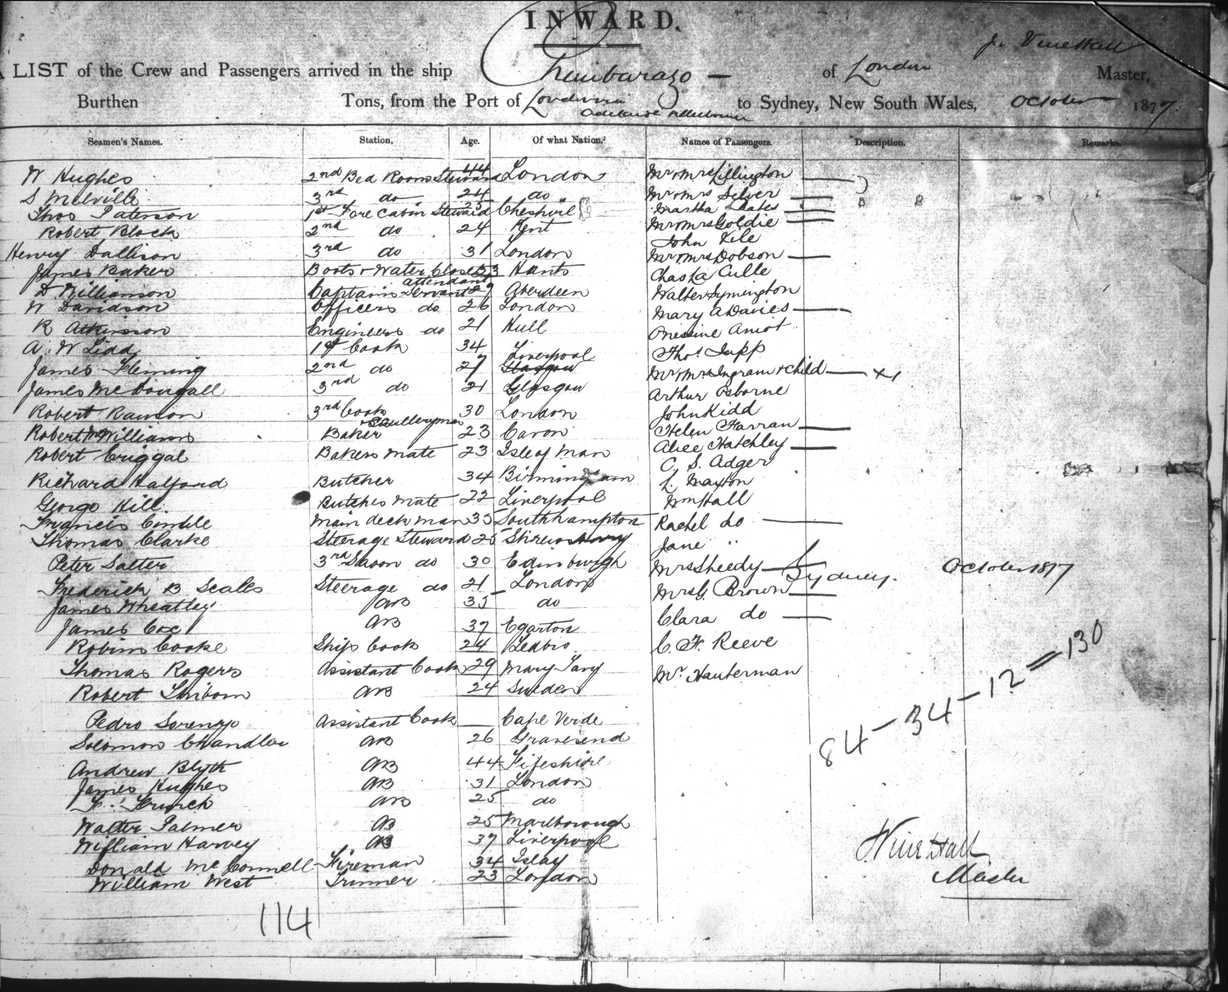 INWARD.
J. Vine Hall
A LIST of the Crew and Passengers arrived in the ship Chimborazo — of London Master,
Burthen Tons, from the Port of London to Sydney, New South Wales, October 1877.
Adelaide Melbourne
Seamen's Names. Station. Age. Of what Nation. Names of Passengers. Description. Remarks.
W Hughes 2nd Bed Room Steward 44 London Mr & Mrs Lillington
S Melville 3rd do 24 do Mr & Mrs Silver
Thos Paterson 1st Fore Cabin Steward 25 Cheshire Martha Slates
Robert Block 2nd do 24 Kent Mr & Mrs Goldie
Henry Dallison 3rd do 31 London John Kile
James Baker Boots & Water Closet attendant 33 Hants Mr & Mrs Dobson
Williamson Captains Servant 29 Aberdeen Chaska Culle
W Davidson Officers do 26 London Walter Symington
R Atkinson Engineers do 21 Hull Mary A Davies
A. W Lidd 1st Cook 34 Liverpool Amot
James Fleming 2nd do 27 Glasgow Thos Tapp
James McDougall 3rd do 21 Glasgow Mr & Mrs Ingram & Child — x1
Robert Rawson 3rd Cook & Sculleryman 30 London Arthur Osborne
Robert Williams Baker 23 Carvon John Kidd
Robert Criggal Bakers Mate 23 Isle of Man Helen Farran
Richard Halford Butcher 34 Birmingham Alice Hatchley
George Hill Butchers Mate 22 Liverpool C. S. Adger
Francis Comble Main deck man 35 Southhampton L. Maxton
Thomas Clarke Steerage Steward 25 Shrewsbury Wm Hall
Peter Salter 3rd Saloon do 30 Edinburgh Rachel do
Frederick B Scales Steerage do 21 London Jane "
James Wheatley AB 35 do Mrs Sheedy Sydney. October 1877
James Cox AB 37 Egarton Mrs G. Brown
Robins Cooke Ships Cook 24 Clara do
Thomas Rogers Assistant Cook 29 Mary Tavy C. F. Reeve
Robert Thibom AB 24 Sweden Mr. Hauterman
Pedro Lorenzo Assistant Cook — Cape Verde
Solomon Chandler AB 26 Gravesend
84 — 34 — 12 = 130
Andrew Blyth AB 44 Fifeshire
James Hughes AB 31 London
F. French AB 25 do
Walter Palmer AB 25 Marlborough
William Harvey AB 37 Liverpool
Donald McConnell Fireman 34 Islay
William West Trimmer 23 London
J Vine Hall
Master
114